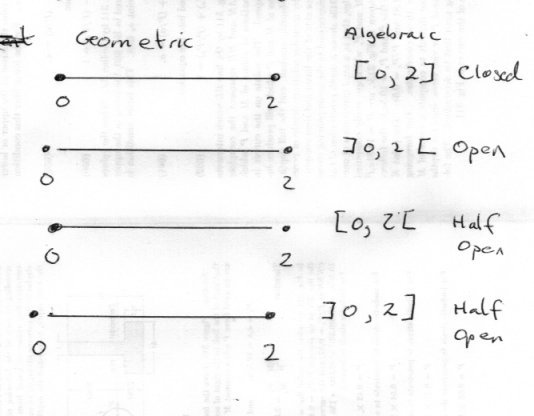 Geometric Algebraic
[0, 2] Closed
0 2
]0, 2[ Open
0 2
[0, 2[ Half
Open
0 2
]0, 2] Half
Open
0 2